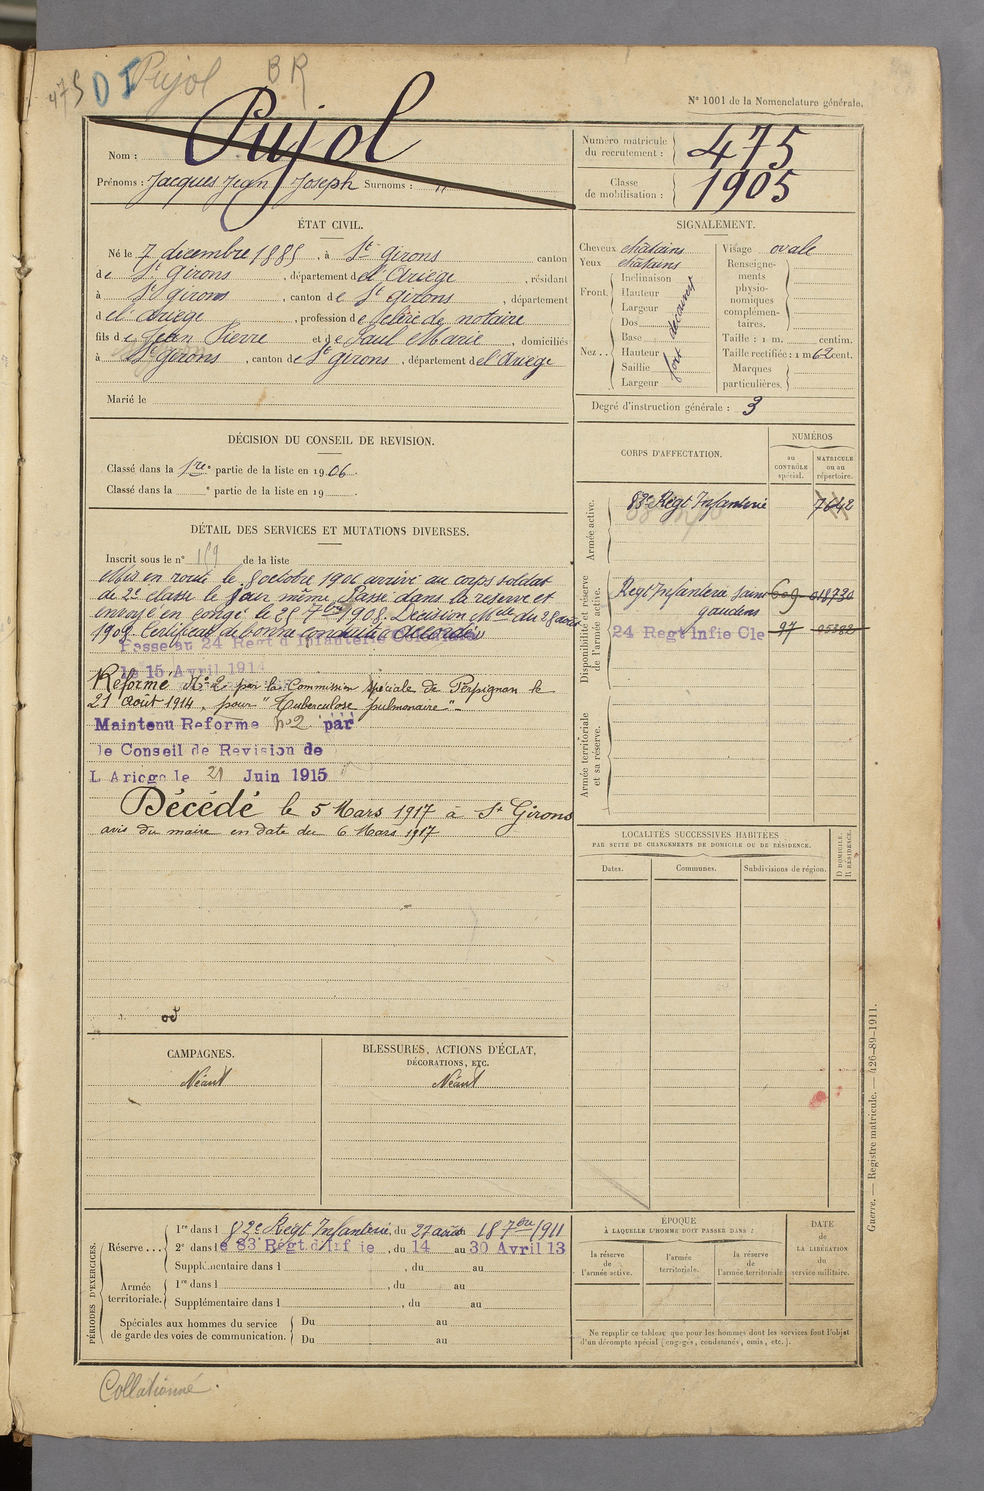 475 D I Pujol BR
N° 1001 de la Nomenclature générale.
Nom : Pujol
Prénoms : Jacques Jean Joseph Surnoms : "
Numéro matricule du recrutement : 475
Classe de mobilisation : 1905
ÉTAT CIVIL.
Né le 7 décembre 1885, à St Girons canton
de St Girons, département de l'Ariège, résidant
à St Girons, canton de St Girons, département
d el'Ariège, profession de Clerc de notaire
fils de Jean Pierre et de Paul Marie, domiciliés
à St Girons, canton de St Girons, département de l'Ariège
Marié le
SIGNALEMENT.
Cheveux châtains
Yeux châtains
Front.
Inclinaison
Hauteur
Largeur
Nez . .
Dos
Base
Hauteur
Saillie
Largeur
fort
Visage ovale
Renseignements physionomiques complémentaires.
Taille : 1 m. centim.
Taille rectifiée : 1 m 62 cent.
Marques particulières.
Degré d'instruction générale : 3
DÉCISION DU CONSEIL DE REVISION.
Classé dans la 1re partie de la liste en 1906.
Classé dans la e partie de la liste en 19 .
DÉTAIL DES SERVICES ET MUTATIONS DIVERSES.
Inscrit sous le n° 169 de la liste
Mis en route le 8 octobre 1906 arrivé au corps soldat
de 2e classe le jour même. Passé dans la réserve et
envoyé en congé le 25 7bre 1908. Décision Mlle du 28 août
1908. Certificat de bonne conduite Accordé
Passé au 24 Régt d'Infanterie Coloniale
le 15 Avril 1914
Réformé N° 2 par la Commission spéciale de Perpignan le
21 août 1914, pour "Tuberculose pulmonaire".
Maintenu Reforme n°2 par
le Conseil de Revision de
L Ariege le 21 Juin 1915
Décédé le 5 Mars 1917 à St Girons
avis du maire en date du 6 Mars 1917
CORPS D'AFFECTATION.
NUMÉROS
au CONTRÔLE spécial.
MATRICULE ou au répertoire.
Armée active.
83e Régt Infanterie 7642
Disponibilité et réserve de l'armée active.
Régt Infanterie Saint 609 018730
gaudens
24 Regt Infie Cle 97 05382
Armée territoriale et sa réserve.
LOCALITÉS SUCCESSIVES HABITÉES
PAR SUITE DE CHANGEMENTS DE DOMICILE OU DE RÉSIDENCE.
Dates.
Communes.
Subdivisions de région.
D DOMICILE. R RÉSIDENCE.
CAMPAGNES.
Néant
BLESSURES, ACTIONS D'ÉCLAT,
DÉCORATIONS, ETC.
Néant
PÉRIODES D'EXERCICES.
Réserve . . .
1re dans l 82e Régt Infanterie du 27 août 18 7bre 1911
2e dans le 83 Régt. d'Inf ie, du 14 au 30 Avril 13
Supplémentaire dans l , du au
Armée territoriale.
1re dans l , du au
Supplémentaire dans l , du au
Spéciales aux hommes du service de garde des voies de communication.
Du au
Du au
ÉPOQUE
À LAQUELLE L'HOMME DOIT PASSER DANS :
la réserve de l'armée active.
l'armée territoriale.
la réserve de l'armée territoriale
DATE de LA LIBÉRATION du service militaire.
Ne remplir ce tableau que pour les hommes dont les services font l'objet
d'un décompte spécial (engagés, condamnés, omis, etc.).
Guerre. — Registre matricule. — 426-89-1911.
Collationné.